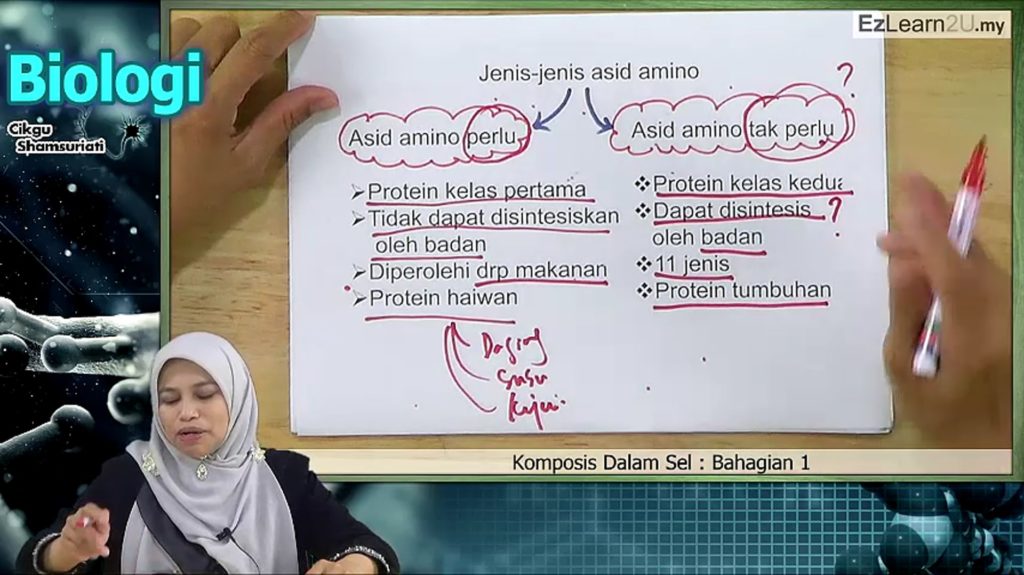 EzLearn2U.my
Biologi
Cikgu
Shamsuriati
Jenis-jenis asid amino
?
Asid amino perlu
Asid amino tak perlu
Protein kelas pertama
Tidak dapat disintesiskan
oleh badan
Diperolehi drp makanan
Protein haiwan
Daging
susu
keju
Protein kelas kedua
Dapat disintesis ?
oleh badan
11 jenis
Protein tumbuhan
Komposis Dalam Sel : Bahagian 1